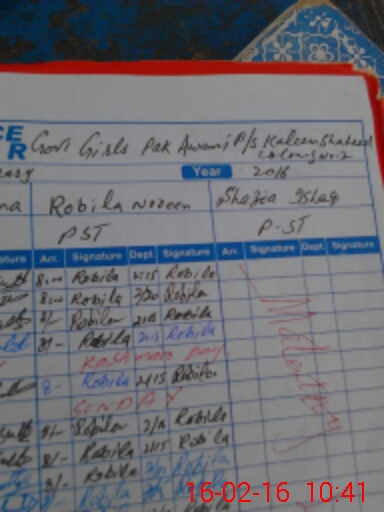 CE Govt Girls Pak Awami P/S Kaleem Shaheed
R Colony No. 2
ary Year 2016
na Robila Noreen Shazia Ishaq
PST P-ST
ature Arr. Signature Dept. Signature Arr. Signature Dept. Signature
8:00 Robila 2:15 Robila
8:00 Robila 2/20 Robila
8/- Robila Robila
8/- Robila 2:15 Robila
Kashmir Day
8- Robila 2:15 Robila
SUNDAY
8/- Robila Robila
8/- Robila 2:15 Robila
8/- Robila Robila
Robila Robila
Robila
16-02-16 10:41